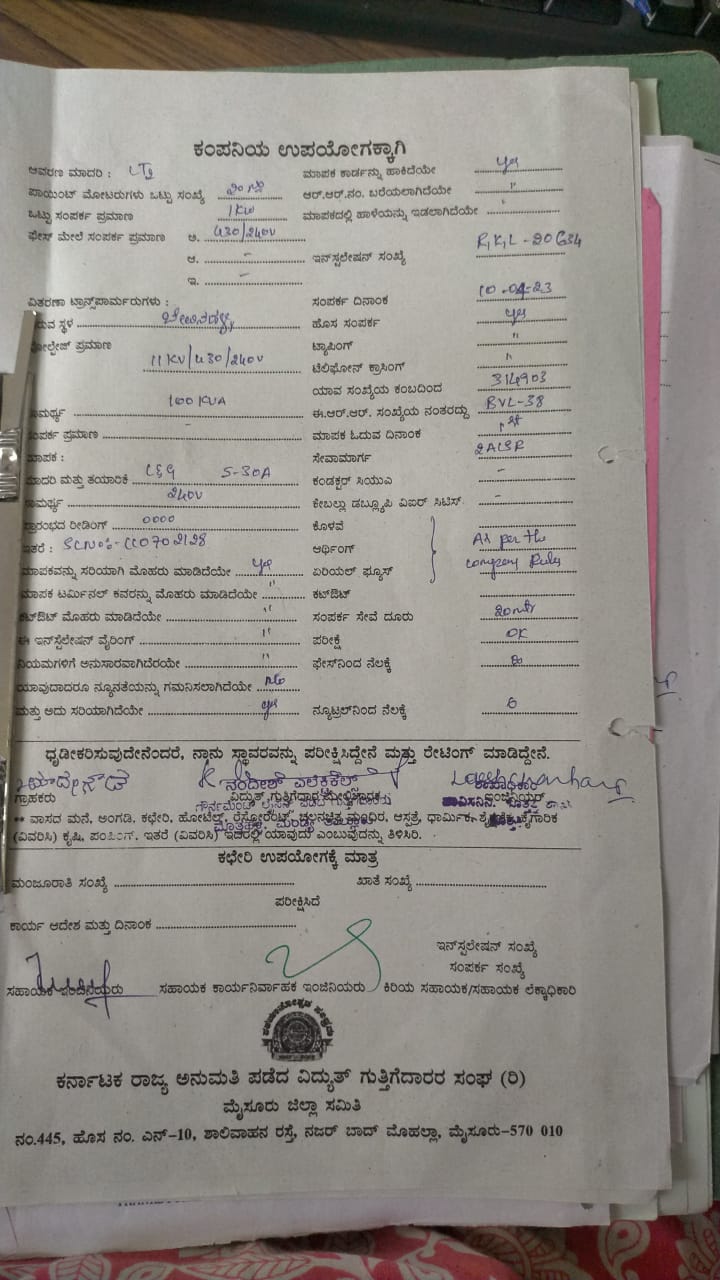 ಕಂಪನಿಯ ಉಪಯೋಗಕ್ಕಾಗಿ
ಆವರಣ ಮಾದರಿ : ಮಾಪಕ ಕಾರ್ಡನ್ನು ಹಾಕಿದೆಯೇ yes
ಪಾಯಿಂಟ್ ಮೋಟರುಗಳು ಒಟ್ಟು ಸಂಖ್ಯೆ ಆರ್.ಆರ್.ನಂ. ಬರೆಯಲಾಗಿದೆಯೇ "
ಒಟ್ಟು ಸಂಪರ್ಕ ಪ್ರಮಾಣ 1KW ಮಾಪಕದಲ್ಲಿ ಹಾಳೆಯನ್ನು ಇಡಲಾಗಿದೆಯೇ "
ಫೇಸ್ ಮೇಲೆ ಸಂಪರ್ಕ ಪ್ರಮಾಣ ಅ. 430/240V
ಆ. - ಇನ್‌ಸ್ಟಲೇಷನ್ ಸಂಖ್ಯೆ
ಇ. -
ವಿತರಣಾ ಟ್ರಾನ್ಸ್‌ಪಾರ್ಮರುಗಳು : ಸಂಪರ್ಕ ದಿನಾಂಕ 10-04-23
ಹೊಸ ಸಂಪರ್ಕ yes
ಪ್ರಮಾಣ 11KV/430/240V ಟ್ಯಾಪಿಂಗ್ "
ಟೆಲಿಫೋನ್ ಕ್ರಾಸಿಂಗ್ "
ಯಾವ ಸಂಖ್ಯೆಯ ಕಂಬದಿಂದ 314903
100KVA ಈ.ಆರ್.ಆರ್. ಸಂಖ್ಯೆಯ ನಂತರದ್ದು BVL-38
ಪ್ರಮಾಣ - ಮಾಪಕ ಓದುವ ದಿನಾಂಕ 1st
ಮಾಪಕ : ಸೇವಾಮಾರ್ಗ 2ACSR
ಮಾದರಿ ಮತ್ತು ತಯಾರಿಕೆ L&G 5-30A ಕಂಡಕ್ಟರ್ ಸಿಯುಎ -
240V ಕೇಬಲ್ಲು ಡಬ್ಲ್ಯೂಪಿ ವಿಐರ್ ಸಿಟಿಸ್ -
ರೀಡಿಂಗ್ 0000 ಕೊಳವೆ
ಇತರೆ : ಅರ್ಥಿಂಗ್ As per the
ಮಾಪಕವನ್ನು ಸರಿಯಾಗಿ ಮೊಹರು ಮಾಡಿದೆಯೇ yes ಏರಿಯಲ್ ಫ್ಯೂಸ್ company Rules
ಮಾಪಕ ಟರ್ಮಿನಲ್ ಕವರನ್ನು ಮೊಹರು ಮಾಡಿದೆಯೇ " ಕಟ್‌ಔಟ್
ಕಟ್‌ಔಟ್ ಮೊಹರು ಮಾಡಿದೆಯೇ " ಸಂಪರ್ಕ ಸೇವೆ ದೂರು 20mtr
ಈ ಇನ್‌ಸ್ಟಲೇಷನ್ ವೈರಿಂಗ್ " ಪರೀಕ್ಷೆ OK
ನಿಯಮಗಳಿಗೆ ಅನುಸಾರವಾಗಿದೆರಯೇ " ಫೇಸ್‌ನಿಂದ ನೆಲಕ್ಕೆ
ಯಾವುದಾದರೂ ನ್ಯೂನತೆಯನ್ನು ಗಮನಿಸಲಾಗಿದೆಯೇ No
ಮತ್ತು ಅದು ಸರಿಯಾಗಿದೆಯೇ yes ನ್ಯೂಟ್ರಲ್‌ನಿಂದ ನೆಲಕ್ಕೆ
ಧೃಡೀಕರಿಸುವುದೇನೆಂದರೆ, ನಾನು ಸ್ಥಾವರವನ್ನು ಪರೀಕ್ಷಿಸಿದ್ದೇನೆ ಮತ್ತು ರೇಟಿಂಗ್ ಮಾಡಿದ್ದೇನೆ.
ನಂದೀಶ್ ಎಲೆಕ್ಟ್ರಿಕಲ್ಸ್
ಗ್ರಾಹಕರು ವಿದ್ಯುತ್ ಗುತ್ತಿಗೆದಾರ ಇಂಜಿನಿಯರ್
** ವಾಸದ ಮನೆ, ಅಂಗಡಿ, ಕಛೇರಿ, ಹೋಟೆಲ್, ರೆಸ್ಟೋರೆಂಟ್, ಚಲನಚಿತ್ರ ಮಂದಿರ, ಆಸ್ಪತ್ರೆ, ಧಾರ್ಮಿಕ, ಕೈಗಾರಿಕ
(ವಿವರಿಸಿ) ಕೃಷಿ, ಪಂಪಿಂಗ್. ಇತರೆ (ವಿವರಿಸಿ) ಇದರಲ್ಲಿ ಯಾವುದು ಎಂಬುವುದನ್ನು ತಿಳಿಸಿರಿ.
ಕಛೇರಿ ಉಪಯೋಗಕ್ಕೆ ಮಾತ್ರ
ಮಂಜೂರಾತಿ ಸಂಖ್ಯೆ ಖಾತೆ ಸಂಖ್ಯೆ
ಪರೀಕ್ಷಿಸಿದೆ
ಕಾರ್ಯ ಆದೇಶ ಮತ್ತು ದಿನಾಂಕ
ಇನ್‌ಸ್ಟಲೇಷನ್ ಸಂಖ್ಯೆ
ಸಂಪರ್ಕ ಸಂಖ್ಯೆ
ಸಹಾಯಕ ಇಂಜಿನಿಯರು ಸಹಾಯಕ ಕಾರ್ಯನಿರ್ವಾಹಕ ಇಂಜಿನಿಯರು ಕಿರಿಯ ಸಹಾಯಕ/ಸಹಾಯಕ ಲೆಕ್ಕಾಧಿಕಾರಿ
ಕರ್ನಾಟಕ ರಾಜ್ಯ ಅನುಮತಿ ಪಡೆದ ವಿದ್ಯುತ್ ಗುತ್ತಿಗೆದಾರರ ಸಂಘ (ರಿ)
ಮೈಸೂರು ಜಿಲ್ಲಾ ಸಮಿತಿ
ನಂ.445, ಹೊಸ ನಂ. ಎನ್-10, ಶಾಲಿವಾಹನ ರಸ್ತೆ, ನಜರ್ ಬಾದ್ ಮೊಹಲ್ಲಾ, ಮೈಸೂರು-570 010